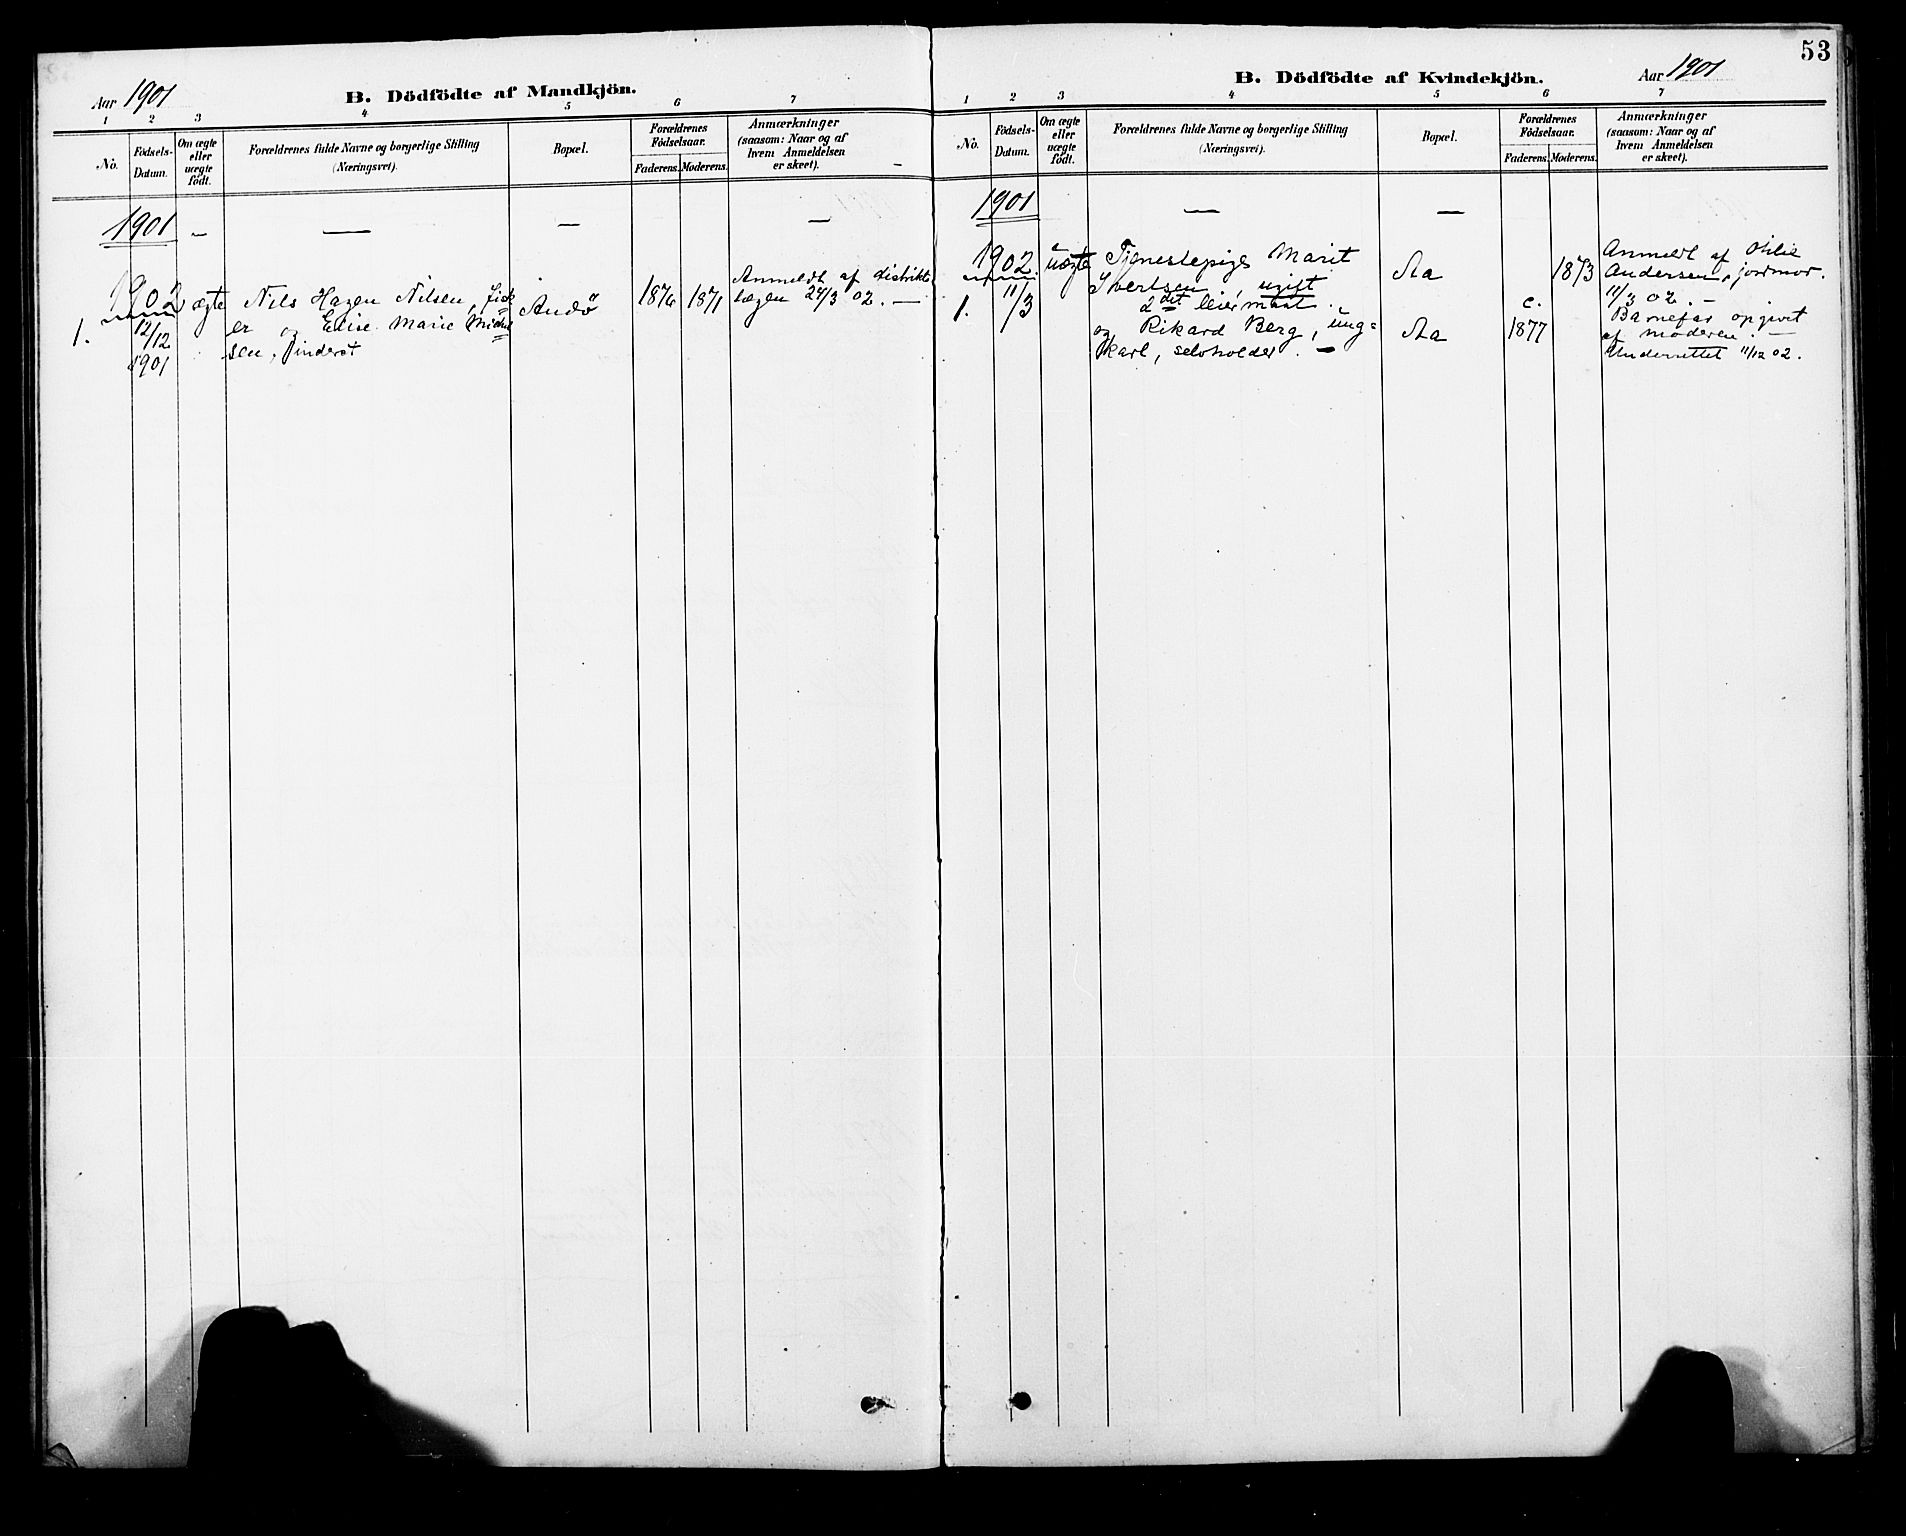 Aar 1901
B. Dödfödte af Mandkjön.
1 2 3 4 5 6 7
No.
Födsels-
Datum.
Om ægte
eller
uægte
födt.
Forældrenes fulde Navne og borgerlige Stilling
(Næringsvei).
Bopæl.
Forældrenes
Födselsaar.
Faderens. Moderens.
Anmærkninger
(saasom: Naar og af
hvem Anmeldelsen
er skeet).
1901 — — — —
1902
1.
12/12
1901
ægte
Nils Hagen Nilsen, fisk
er og Elise Marie Michel
sen, Finderst
Andö
1876 1871
Anmeldt af distrikts
lægen 24/3 02. —
53
B. Dödfödte af Kvindekjön.
Aar 1901
1 2 3 4 5 6 7
No.
Födsels-
Datum.
Om ægte
eller
uægte
födt.
Forældrenes fulde Navne og borgerlige Stilling
(Næringsvei).
Bopæl.
Forældrenes
Födselsaar.
Faderens. Moderens.
Anmærkninger
(saasom: Naar og af
hvem Anmeldelsen
er skeet).
1901 — —
1902.
1.
11/3
uægte
Tjenestepige Marit
Ivertsen, ugift
2det leiermaal.
og Rikard Berg, ung=
karl, selvholder. —
Aa
Aa
c.
1877
1873
Anmeldt af Otilie
Andersen, jordmor.
11/3 02. —
Barnefar opgivet
af moderen. —
Underrettet 11/12 02.